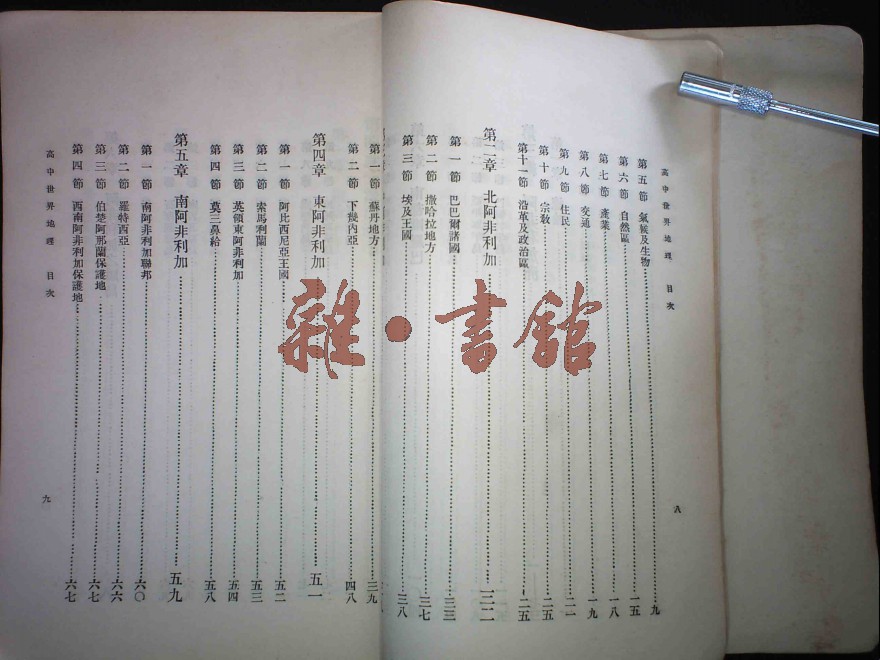 高中世界地理 目次
八
第五節 氣候及生物 九
第六節 自然區 一五
第七節 產業 一八
第八節 交通 一九
第九節 住民
第十節 宗教 二五
第十一節 沿革及政治區 二五
第二章 北阿非利加 三二
第一節 巴巴爾諸國 三三
第二節 撒哈拉地方 三七
第三節 埃及王國 三八
第一節 蘇丹地方 三九
第二節 下幾內亞 四八
第四章 東阿非利加 五一
第一節 阿比西尼亞王國 五二
第二節 索馬利蘭 五三
第三節 英領東阿非利加 五四
第四節 莫三鼻給 五八
第五章 南阿非利加 五九
第一節 南阿非利加聯邦 六〇
第二節 羅特西亞 六六
第三節 伯楚阿那蘭保護地 六七
第四節 西南阿非利加保護地 六七
高中世界地理 目次
九
雜·書館